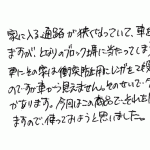 家に入る通路が狭くなっていて、車を
ますが、となりのブロック塀に当たってしまう
車にその家は衝突防止用にレンガを
のですが車から見えません。そのせいで
があります。今回はこの商品で、それを
ますので、使ってみようと思いました。